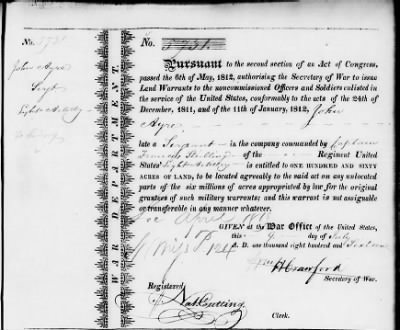 No. 5731.
John Ayro
Sergt
Light Artillery
WAR DEPARTMENT.
No. 5731.
Pursuant to the second section of an Act of Congress,
passed the 6th of May, 1812, authorising the Secretary of War to issue
Land Warrants to the noncommissioned Officers and Soldiers enlisted in
the service of the United States, conformably to the acts of the 24th of
December, 1811, and of the 11th of January, 1812, John
Ayro
late a Sergeant in the company commanded by Captain
Francis Stribling of the Regiment United
States' Light Artillery is entitled to ONE HUNDRED AND SIXTY
ACRES OF LAND, to be located agreeably to the said act on any unlocated
parts of the six millions of acres appropriated by law for the original
grantees of such military warrants; and this warrant is not assignable
or transferable in any manner whatever.
GIVEN at the War Office of the United States,
this 9 day of July
A. D. one thousand eight hundred and Sixteen
Wm H Crawford
Secretary of War.
Registered
Nat Cutting
Clerk.